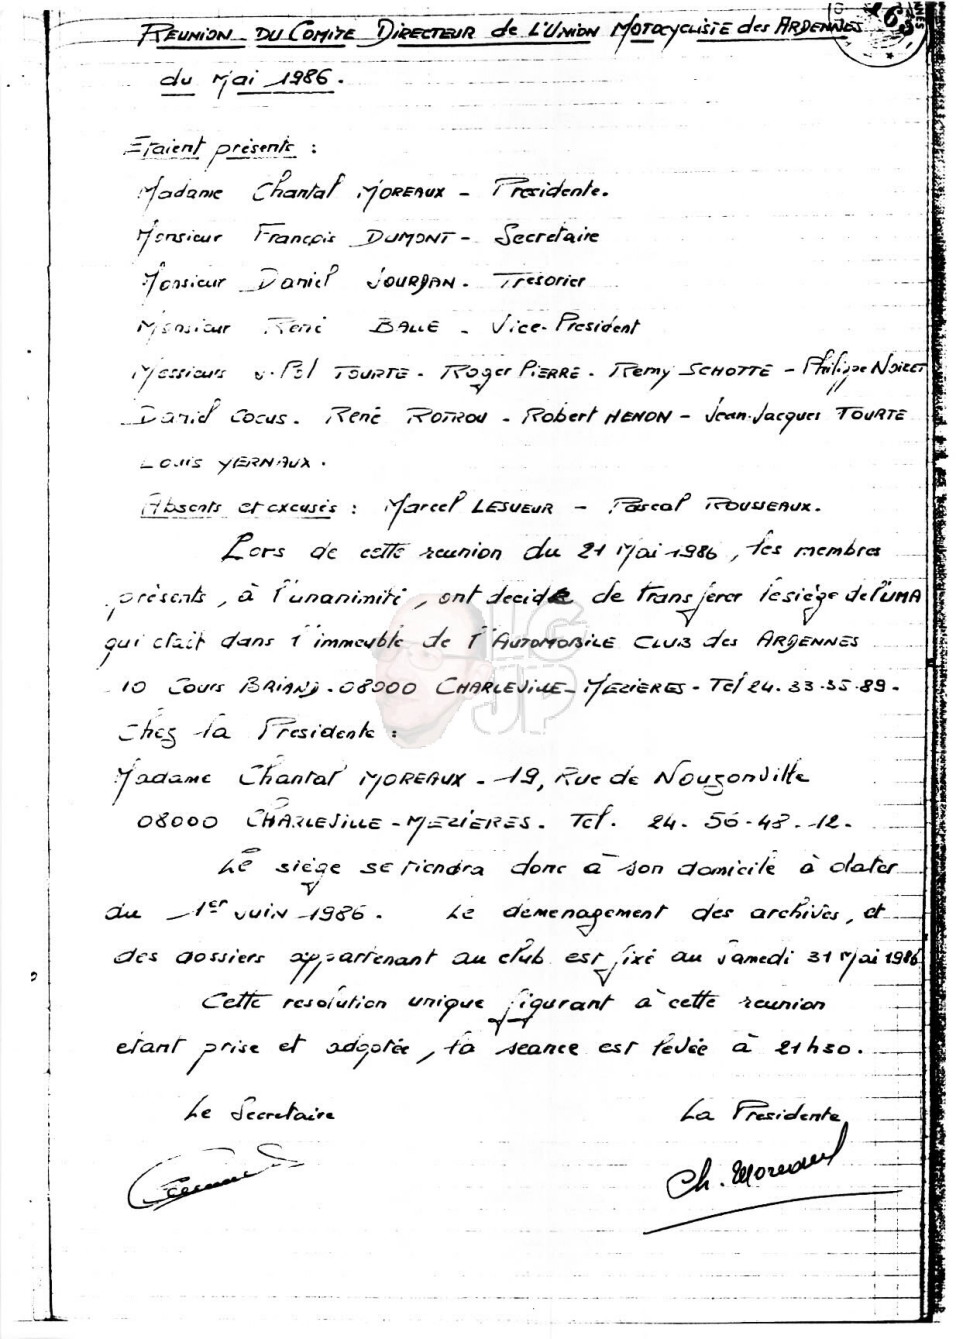 REUNION DU COMITE DIRECTEUR de L'UNION MOTOCYCLISTE des ARDENNES
du Mai 1986.
Etaient présents :
Madame Chantal MOREAUX - Presidente.
Monsieur François DUMONT - Secretaire
Monsieur Daniel JOURDAN. Tresorier
Monsieur René BALLE - Vice-President
Messieurs J-Pol TOURTE - Roger PIERRE - Remy SCHOTTE - Philippe NOIRET
Daniel COCUS. René ROTROU - Robert HENON - Jean-Jacques TOURTE
Louis YERNAUX.
Absents et excusés : Marcel LESUEUR - Pascal ROUSSEAUX.
Lors de cette reunion du 21 Mai 1986, les membres
présents, à l'unanimité, ont decidé de transferer le siège de l'UMA
qui etait dans l'immeuble de l'AUTOMOBILE CLUB des ARDENNES
10 Cours BRIAND - 08000 CHARLEVILLE-MEZIERES - Tel 24.33.35.89.
Chez la Presidente :
Madame Chantal MOREAUX - 19, Rue de Nouzonville
08000 CHARLEVILLE-MEZIERES. Tel. 24.56.48.12.
Le siège se tiendra donc à son domicile à dater
du 1er Juin 1986. Le demenagement des archives, et
des dossiers appartenant au club est fixé au Samedi 31 Mai 1986
Cette resolution unique figurant à cette reunion
etant prise et adoptée, la seance est levée à 21h30.
Le Secretaire La Presidente
Ch. Moreaux
LG
JP